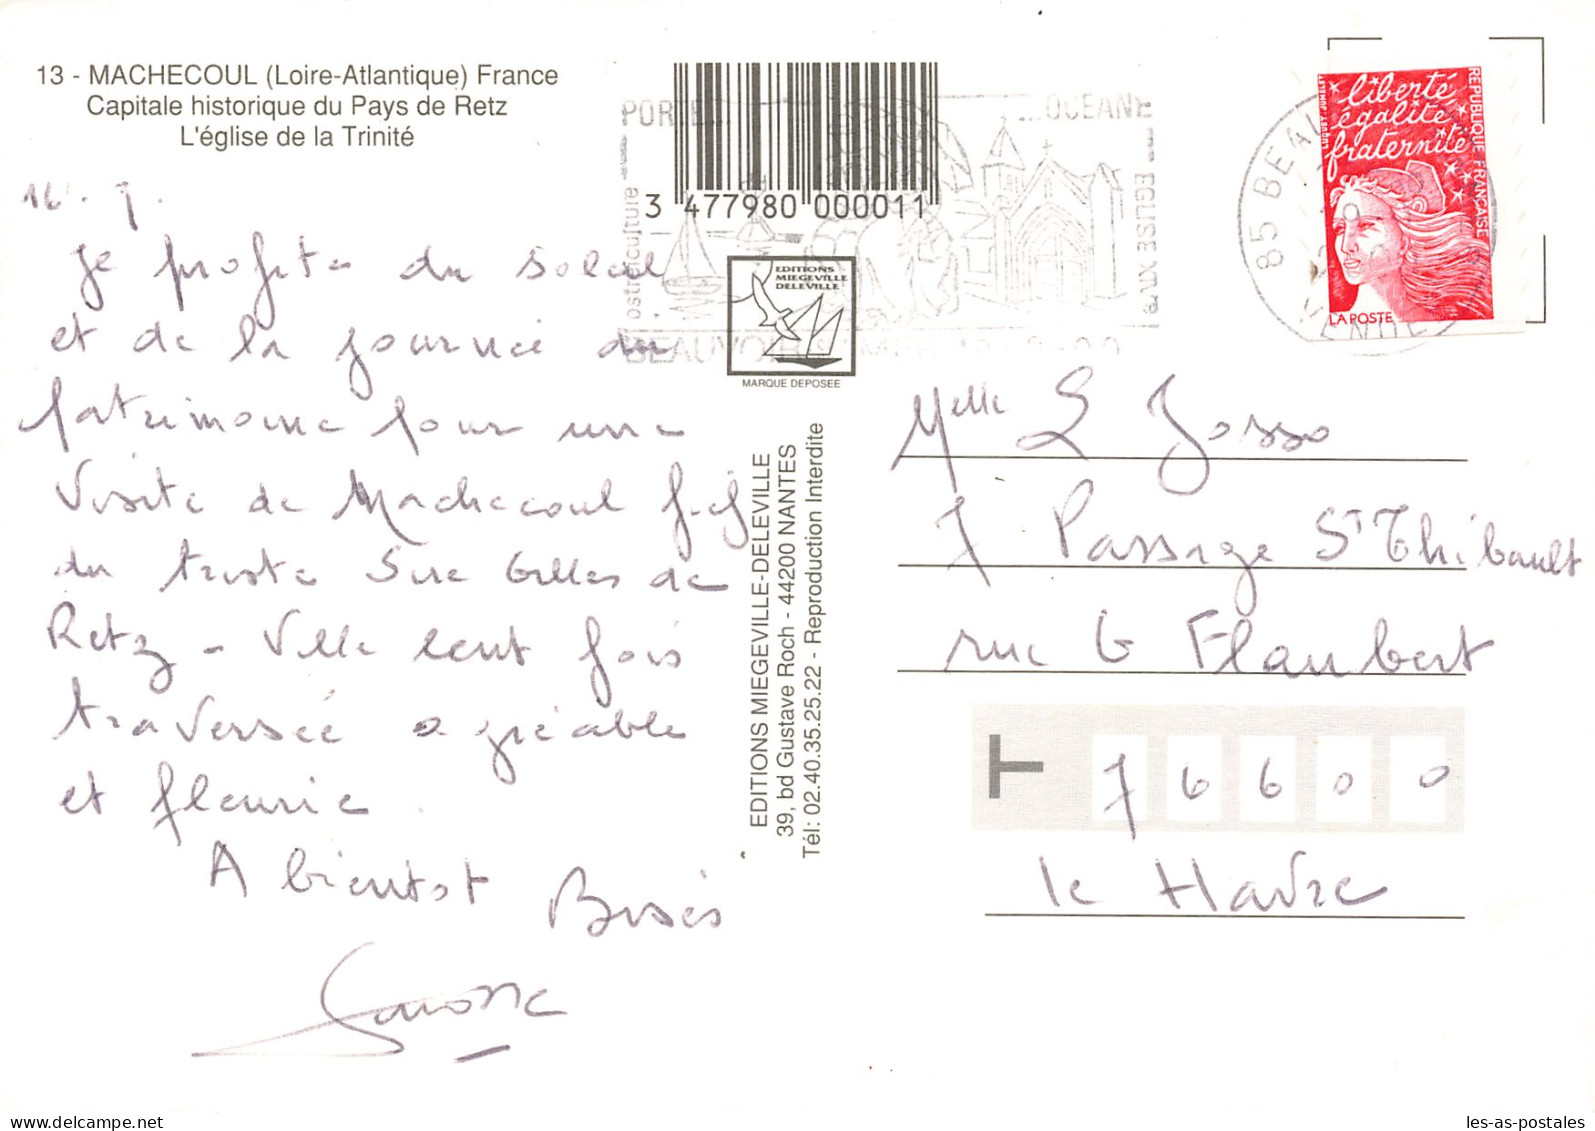 13 - MACHECOUL (Loire-Atlantique) France
Capitale historique du Pays de Retz
L'église de la Trinité
16. 9.
Je profite du soleil
et de la journée du
patrimoine pour une
visite de Machecoul fief
du triste Sire Gilles de
Retz - Ville cent fois
traversée agréable
et fleurie.
A bientôt Bises
3 477980 000011
PORTE ... OCEANE
ostréiculture
EGLISE XIVe
BEAUVOIR
EDITIONS
MIEGEVILLE
DELEVILLE
MARQUE DEPOSEE
EDITIONS MIEGEVILLE-DELEVILLE
39, bd Gustave Roch - 44200 NANTES
Tél: 02.40.35.25.22 - Reproduction Interdite
85 BEAU
VENDEE
liberté
égalité
fraternité
REPUBLIQUE FRANÇAISE
LUQUET/JUMELET
LA POSTE
Melle L Josso
7 Passage St Thibault
rue G Flaubert
T 76600
le Havre
les-as-postales